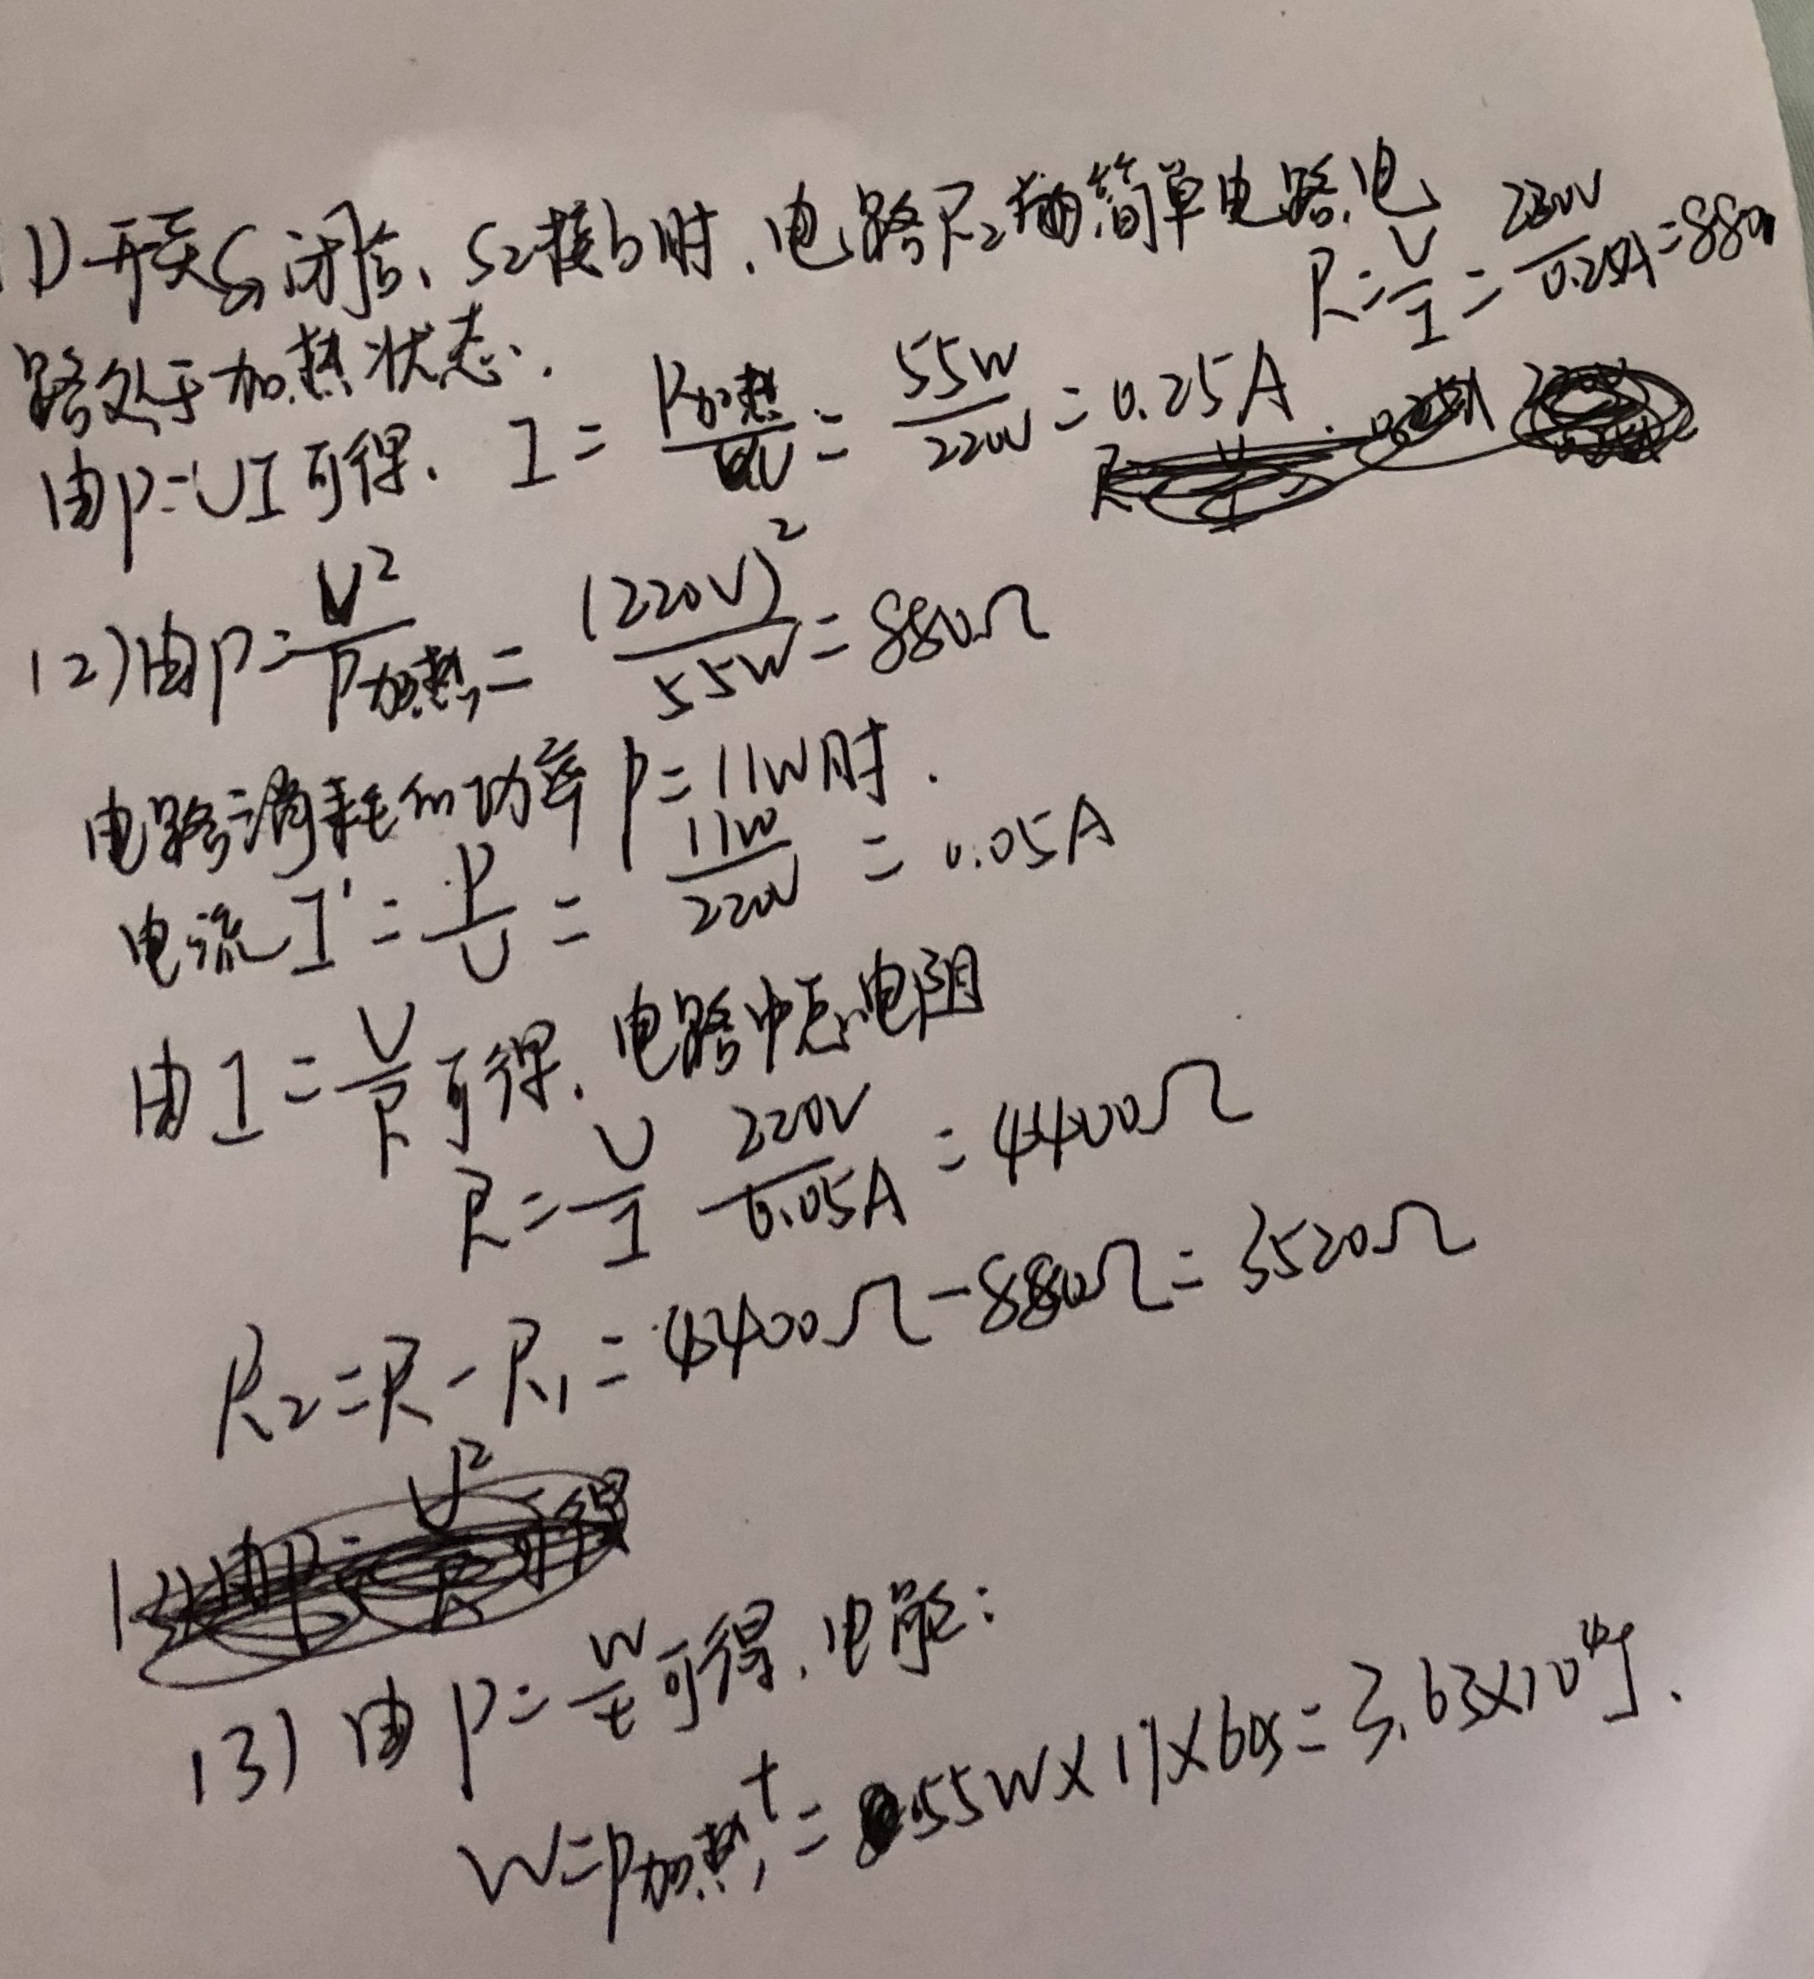 (1)开关S₁闭合、S₂接b时,电路R₂为简单电路,电
路处于加热状态.
由P=UI可得. I=P加热/U=55W/220V=0.25A. R=U/I=220V/0.25A=880
(2)由P=U²/P加热=(220V)²/55W=880Ω
电路消耗的功率P=11W时.
电流I'=P/U=11W/220V=0.05A
由I=U/R可得,电路中总电阻
R=U/I 220V/0.05A=4400Ω
R₂=R-R₁=4400Ω-880Ω=3520Ω
(3)由P=W/t可得,电能:
W=P加热t=55W×11×60s=3.63×10⁴J.